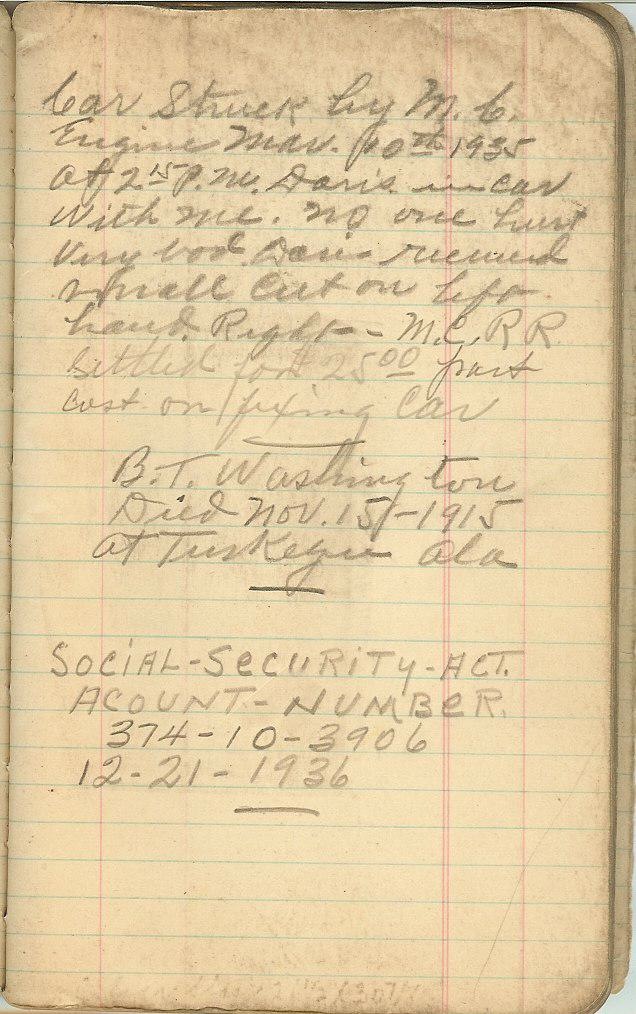 Car Struck by M. C.
Engine Mar. 10th 1935
At 2 15 P.M. Davis in car
With me. no one hurt
Very bad Davis received
small Cut on left
hand. Right - M.C. R R
Settled for 25 00 part
cost on fixing Car
B. T. Washington
Died Nov. 15 - 1915
at Tuskegee Ala
SOCIAL-SECURITY-ACT.
ACOUNT-NUMBER.
374-10-3906
12-21-1936